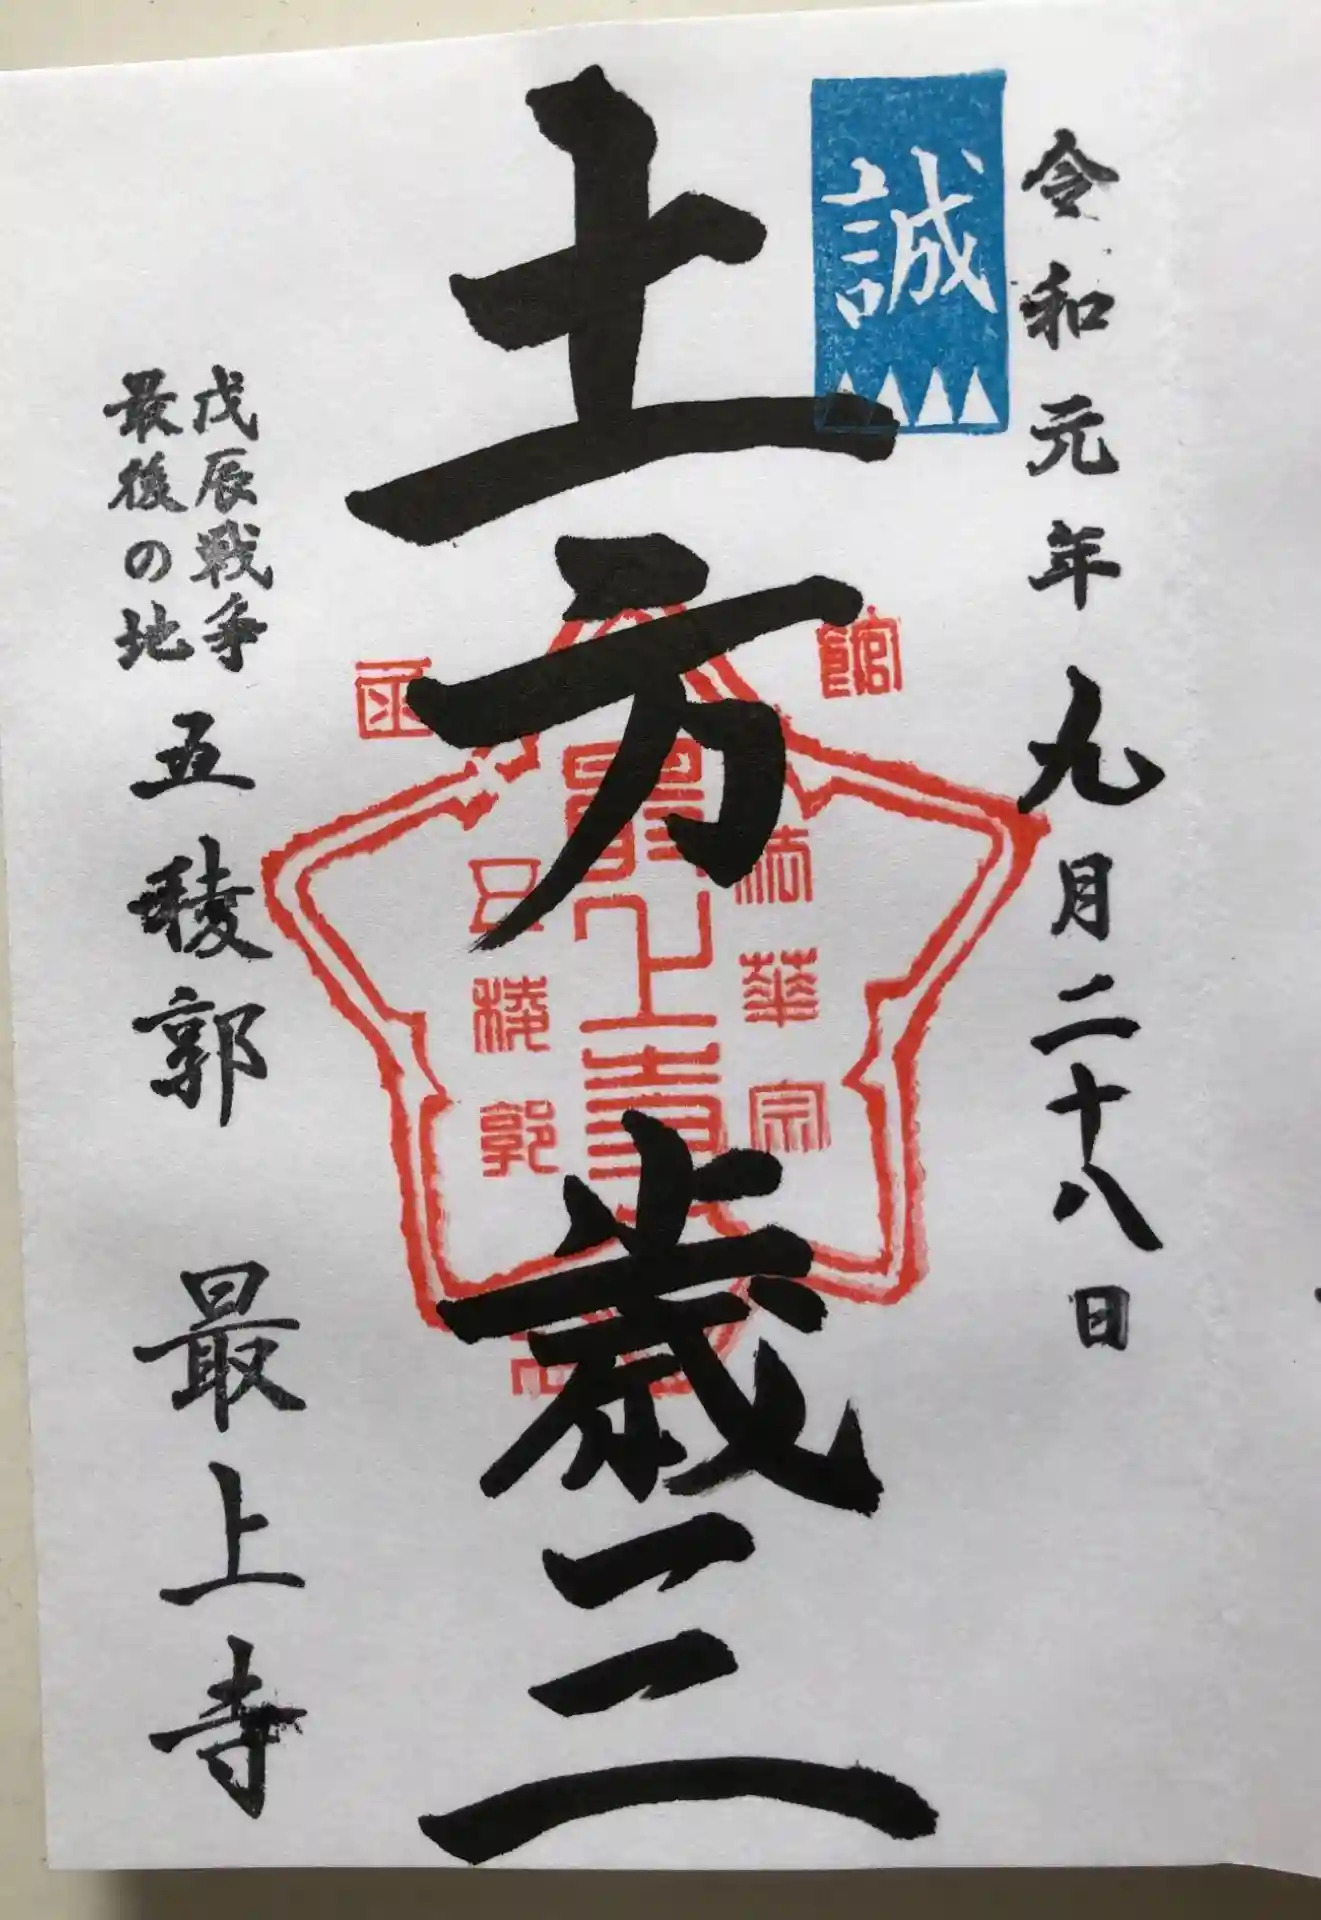 令和元年九月二十八日
誠
土方歳三
函館
法華宗
最上寺
五稜郭
戊辰戦争
最後の地
五稜郭 最上寺